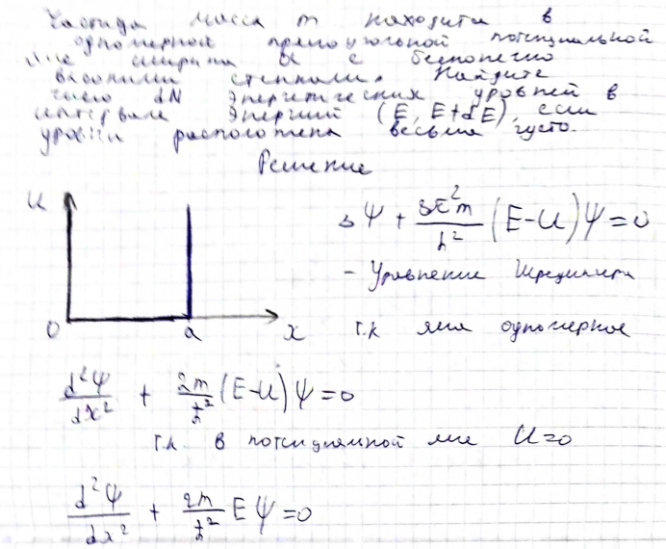 Частица масса m находится в
одномерной прямоугольной потенциальной
яме ширина a с бесконечно
высокими стенками. Найдите
число dN энергетических уровней в
интервале энергий (E, E+dE), если
уровни расположена весьма густо.
Решение
U
Δ Ψ + 8π²m/h² (E-U)Ψ=0
- Уравнение Шредингера
0 a x
т.к яма одномерное
d²Ψ/dx² + 2m/ħ² (E-U)Ψ=0
т.к. в потенциальной яме U=0
d²Ψ/dx² + 2m/ħ² EΨ=0